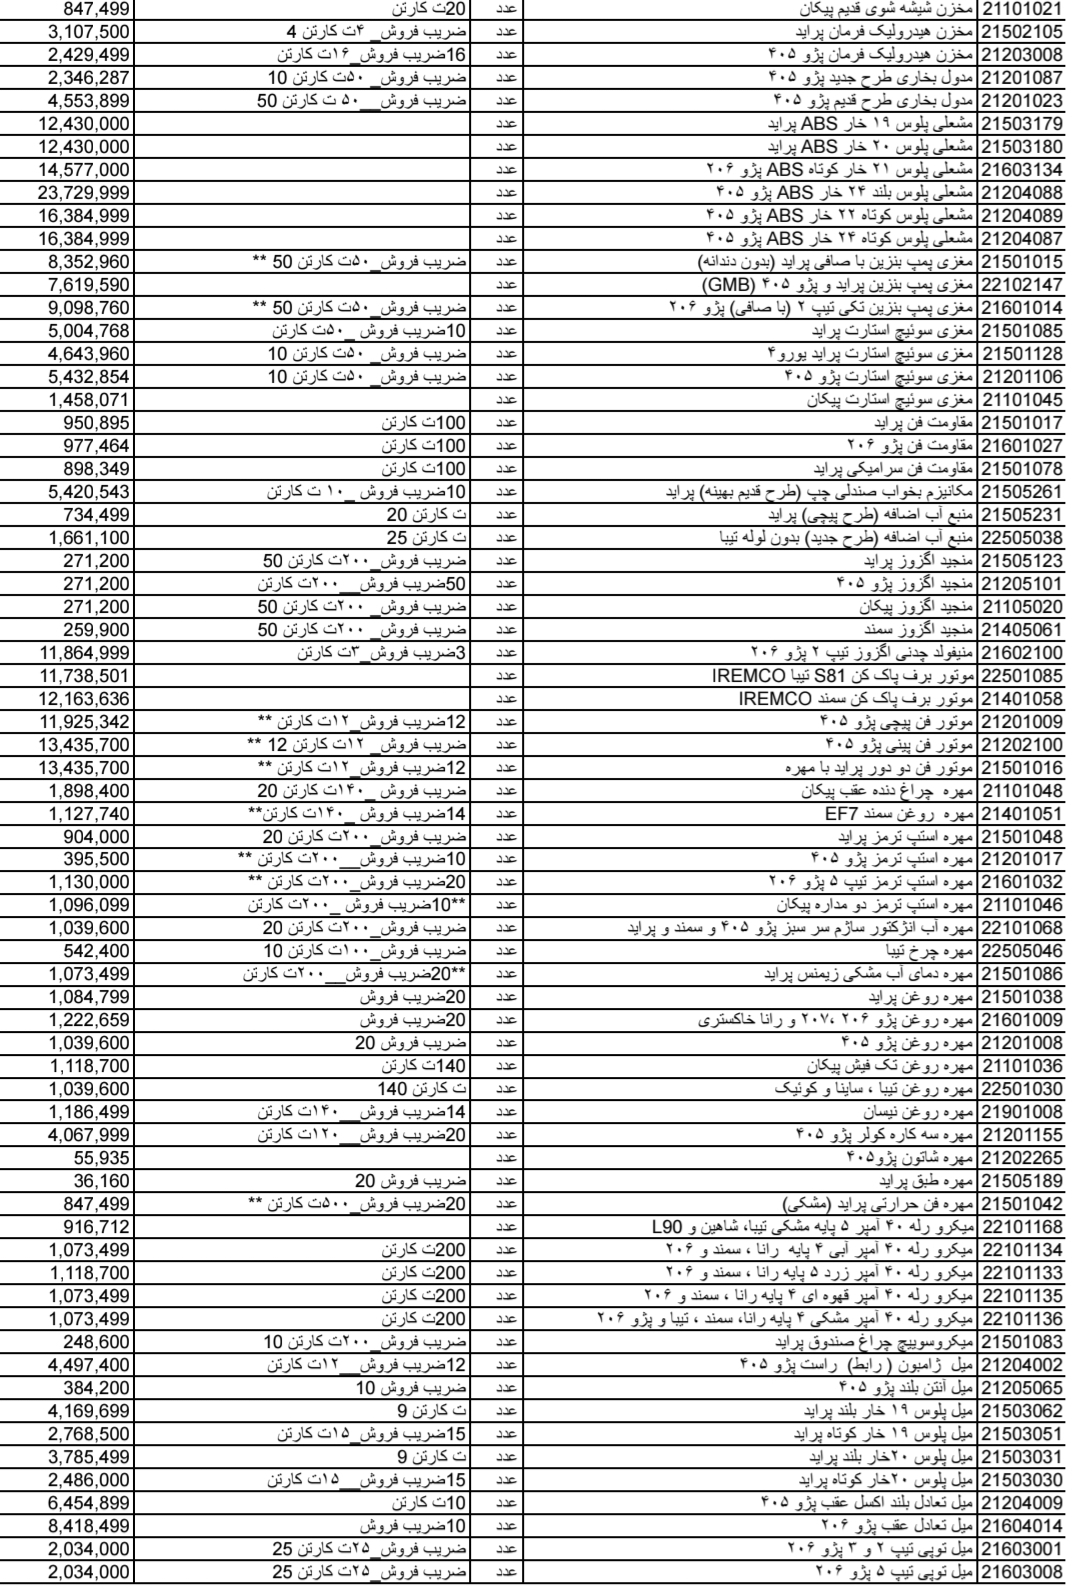 21101021 مخزن شیشه شوی قدیم پیکان عدد 20ت کارتن 847,499
21502105 مخزن هیدرولیک فرمان پراید عدد ضریب فروش_ ۴ت کارتن 4 3,107,500
21203008 مخزن هیدرولیک فرمان پژو ۴۰۵ عدد 16ضریب فروش_۱۶ت کارتن 2,429,499
21201087 مدول بخاری طرح جدید پژو ۴۰۵ عدد ضریب فروش_ ۵۰ت کارتن 10 2,346,287
21201023 مدول بخاری طرح قدیم پژو ۴۰۵ عدد ضریب فروش__ ۵۰ ت کارتن 50 4,553,899
21503179 مشعلی پلوس ۱۹ خار ABS پراید عدد 12,430,000
21503180 مشعلی پلوس ۲۰ خار ABS پراید عدد 12,430,000
21603134 مشعلی پلوس ۲۱ خار کوتاه ABS پژو ۲۰۶ عدد 14,577,000
21204088 مشعلی پلوس بلند ۲۴ خار ABS پژو ۴۰۵ عدد 23,729,999
21204089 مشعلی پلوس کوتاه ۲۲ خار ABS پژو ۴۰۵ عدد 16,384,999
21204087 مشعلی پلوس کوتاه ۲۴ خار ABS پژو ۴۰۵ عدد 16,384,999
21501015 مغزی پمپ بنزین با صافی پراید (بدون دندانه) عدد ضریب فروش_۵۰ت کارتن 50 ** 8,352,960
22102147 مغزی پمپ بنزین پراید و پژو ۴۰۵ (GMB) عدد 7,619,590
21601014 مغزی پمپ بنزین تکی تیپ ۲ (با صافی) پژو ۲۰۶ عدد ضریب فروش_۵۰ت کارتن 50 ** 9,098,760
21501085 مغزی سوئیچ استارت پراید عدد 10ضریب فروش_ ۵۰ت کارتن 5,004,768
21501128 مغزی سوئیچ استارت پراید یورو۴ عدد ضریب فروش_ ۵۰ت کارتن 10 4,643,960
21201106 مغزی سوئیچ استارت پژو ۴۰۵ عدد ضریب فروش_ ۵۰ت کارتن 10 5,432,854
21101045 مغزی سوئیچ استارت پیکان عدد 1,458,071
21501017 مقاومت فن پراید عدد 100ت کارتن 950,895
21601027 مقاومت فن پژو ۲۰۶ عدد 100ت کارتن 977,464
21501078 مقاومت فن سرامیکی پراید عدد 100ت کارتن 898,349
21505261 مکانیزم بخواب صندلی چپ (طرح قدیم بهینه) پراید عدد 10ضریب فروش _۱۰ ت کارتن 5,420,543
21505231 منبع آب اضافه (طرح پیچی) پراید عدد ت کارتن 20 734,499
22505038 منبع آب اضافه (طرح جدید) بدون لوله تیبا عدد ت کارتن 25 1,661,100
21505123 منجید اگزوز پراید عدد ضریب فروش_۲۰۰ت کارتن 50 271,200
21205101 منجید اگزوز پژو ۴۰۵ عدد 50ضریب فروش__ ۲۰۰ت کارتن 271,200
21105020 منجید اگزوز پیکان عدد ضریب فروش_ ۲۰۰ت کارتن 50 271,200
21405061 منجید اگزوز سمند عدد ضریب فروش_ ۲۰۰ت کارتن 50 259,900
21602100 منیفولد چدنی اگزوز تیپ ۲ پژو ۲۰۶ عدد 3ضریب فروش_۳ت کارتن 11,864,999
22501085 موتور برف پاک کن S81 تیبا IREMCO عدد 11,738,501
21401058 موتور برف پاک کن سمند IREMCO عدد 12,163,636
21201009 موتور فن پیچی پژو ۴۰۵ عدد 12ضریب فروش_۱۲ت کارتن ** 11,925,342
21202100 موتور فن پینی پژو ۴۰۵ عدد ضریب فروش_ ۱۲ت کارتن 12 ** 13,435,700
21501016 موتور فن دو دور پراید با مهره عدد 12ضریب فروش_۱۲ت کارتن ** 13,435,700
21101048 مهره چراغ دنده عقب پیکان عدد ضریب فروش_ ۱۴۰ت کارتن 20 1,898,400
21401051 مهره روغن سمند EF7 عدد 14ضریب فروش_ ۱۴۰ت کارتن** 1,127,740
21501048 مهره استپ ترمز پراید عدد ضریب فروش_۲۰۰ت کارتن 20 904,000
21201017 مهره استپ ترمز پژو ۴۰۵ عدد 10ضریب فروش__ ۲۰۰ت کارتن ** 395,500
21601032 مهره استپ ترمز تیپ ۵ پژو ۲۰۶ عدد 20ضریب فروش_۲۰۰ت کارتن ** 1,130,000
21101046 مهره استپ ترمز دو مداره پیکان عدد **10ضریب فروش _۲۰۰ت کارتن 1,096,099
22101068 مهره آب انژکتور ساژم سر سبز پژو ۴۰۵ و سمند و پراید عدد ضریب فروش_۲۰۰ت کارتن 20 1,039,600
22505046 مهره چرخ تیبا عدد ضریب فروش_۱۰۰ت کارتن 10 542,400
21501086 مهره دمای آب مشکی زیمنس پراید عدد **20ضریب فروش__۲۰۰ت کارتن 1,073,499
21501038 مهره روغن پراید عدد 20ضریب فروش 1,084,799
21601009 مهره روغن پژو ۲۰۶ ،۲۰۷ و رانا خاکستری عدد 20ضریب فروش 1,222,659
21201008 مهره روغن پژو ۴۰۵ عدد ضریب فروش 20 1,039,600
21101036 مهره روغن تک فیش پیکان عدد 140ت کارتن 1,118,700
22501030 مهره روغن تیبا ، ساینا و کوئیک عدد ت کارتن 140 1,039,600
21901008 مهره روغن نیسان عدد 14ضریب فروش__ ۱۴۰ت کارتن 1,186,499
21201155 مهره سه کاره کولر پژو ۴۰۵ عدد 20ضریب فروش__ ۱۲۰ت کارتن 4,067,999
21202265 مهره شاتون پژو۴۰۵ عدد 55,935
21505189 مهره طبق پراید عدد ضریب فروش 20 36,160
21501042 مهره فن حرارتی پراید (مشکی) عدد 20ضریب فروش_۵۰۰ت کارتن ** 847,499
22101168 میکرو رله ۴۰ آمپر ۵ پایه مشکی تیبا، شاهین و L90 عدد 916,712
22101134 میکرو رله ۴۰ آمپر آبی ۴ پایه رانا ، سمند و ۲۰۶ عدد 200ت کارتن 1,073,499
22101133 میکرو رله ۴۰ آمپر زرد ۵ پایه رانا ، سمند و ۲۰۶ عدد 200ت کارتن 1,118,700
22101135 میکرو رله ۴۰ آمپر قهوه ای ۴ پایه رانا ، سمند و ۲۰۶ عدد 200ت کارتن 1,073,499
22101136 میکرو رله ۴۰ آمپر مشکی ۴ پایه رانا، سمند ، تیبا و پژو ۲۰۶ عدد 200ت کارتن 1,073,499
21501083 میکروسوییچ چراغ صندوق پراید عدد ضریب فروش_۲۰۰ت کارتن 10 248,600
21204002 میل ژامبون ( رابط) راست پژو ۴۰۵ عدد 12ضریب فروش__ ۱۲ت کارتن 4,497,400
21205065 میل آنتن بلند پژو ۴۰۵ عدد ضریب فروش 10 384,200
21503062 میل پلوس ۱۹ خار بلند پراید عدد ت کارتن 9 4,169,699
21503051 میل پلوس ۱۹ خار کوتاه پراید عدد 15ضریب فروش_۱۵ت کارتن 2,768,500
21503031 میل پلوس ۲۰خار بلند پراید عدد ت کارتن 9 3,785,499
21503030 میل پلوس ۲۰خار کوتاه پراید عدد 15ضریب فروش__ ۱۵ت کارتن 2,486,000
21204009 میل تعادل بلند اکسل عقب پژو ۴۰۵ عدد 10ت کارتن 6,454,899
21604014 میل تعادل عقب پژو ۲۰۶ عدد 10ضریب فروش 8,418,499
21603001 میل توپی تیپ ۲ و ۳ پژو ۲۰۶ عدد ضریب فروش_۲۵ت کارتن 25 2,034,000
21603008 میل توپی تیپ ۵ پژو ۲۰۶ عدد ضریب فروش_۲۵ت کارتن 25 2,034,000